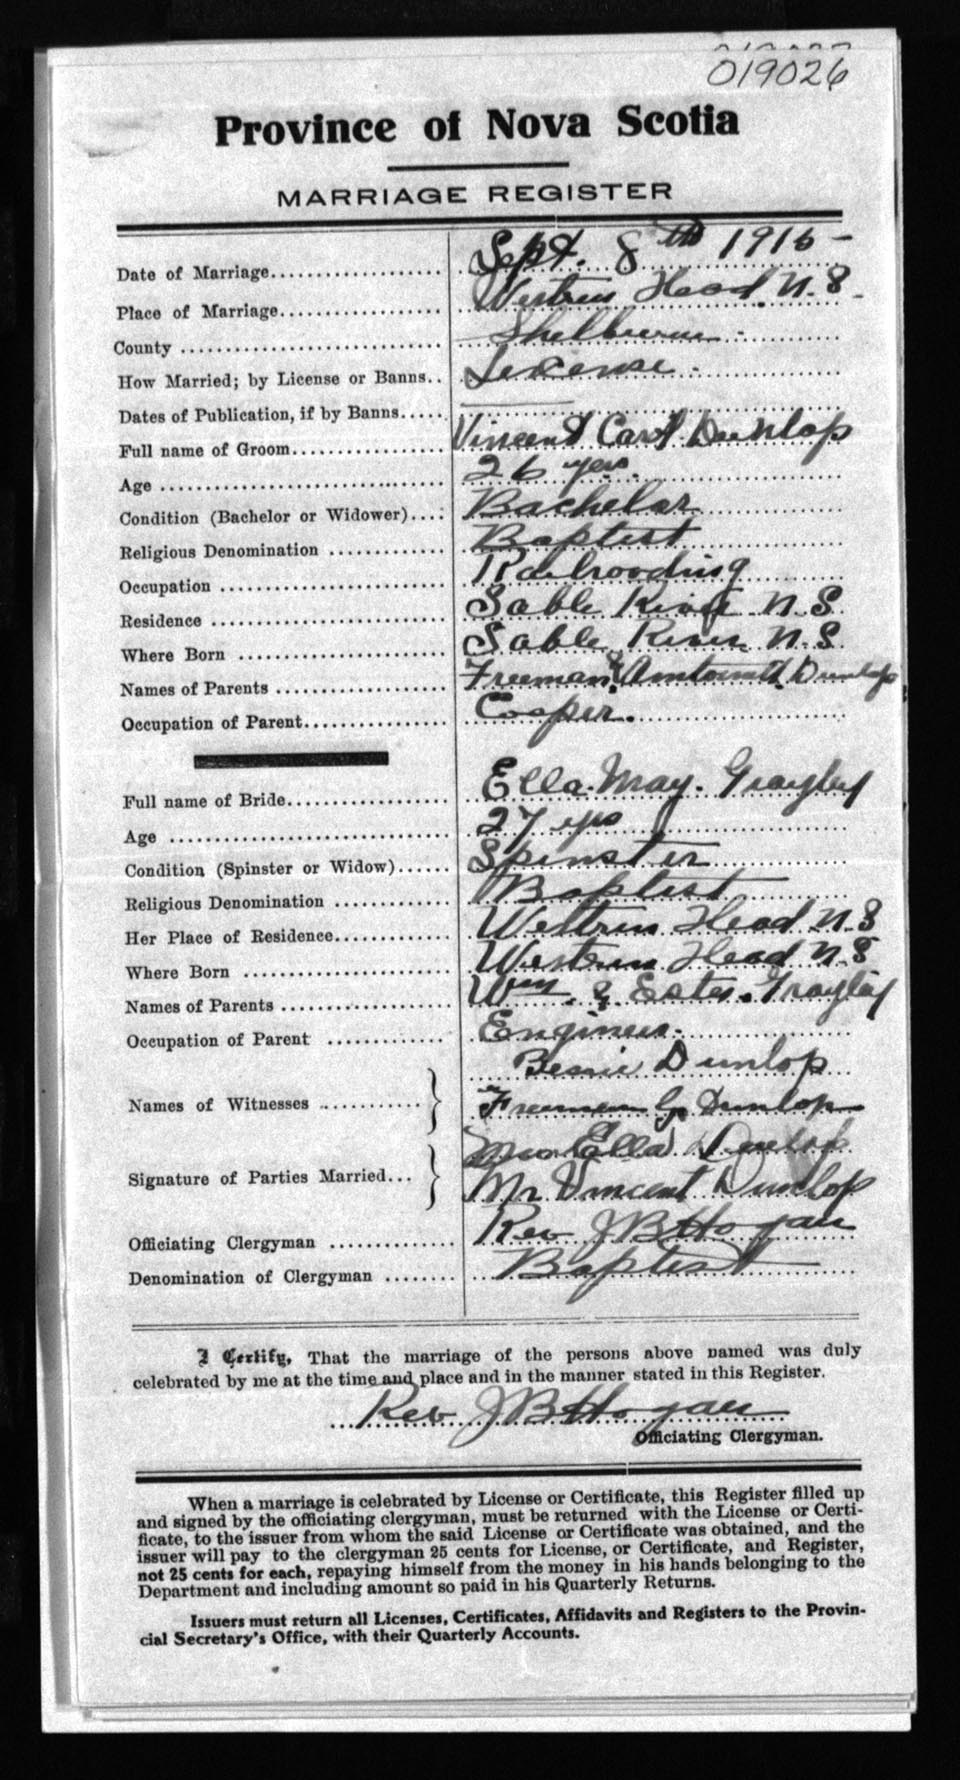 019026
Province of Nova Scotia
MARRIAGE REGISTER
Date of Marriage Sept. 8th 1915
Place of Marriage Western Head N.S.
County Shelburne
How Married; by License or Banns Lisense
Dates of Publication, if by Banns
Full name of Groom Vincent Carl Dunlop
Age 26 yrs.
Condition (Bachelor or Widower) Bachelor
Religious Denomination Baptist
Occupation Railroading
Residence Sable River N.S.
Where Born Sable River N.S.
Names of Parents Freeman & Dunlop
Occupation of Parent Cooper.
Full name of Bride Ella May.
Age 27 yrs
Condition (Spinster or Widow) Spinster
Religious Denomination Baptist
Her Place of Residence Western Head N.S
Where Born Western Head N.S
Names of Parents Wm. &
Occupation of Parent Engineer.
Bessie Dunlop
Names of Witnesses Freeman G Dunlop
Mrs Ella Dunlop
Signature of Parties Married Mr Vincent Dunlop
Officiating Clergyman Rev J B Hogan
Denomination of Clergyman Baptist
I Certify, That the marriage of the persons above named was duly
celebrated by me at the time and place and in the manner stated in this Register.
Rev J B Hogan
Officiating Clergyman.
When a marriage is celebrated by License or Certificate, this Register filled up
and signed by the officiating clergyman, must be returned with the License or Certi-
ficate, to the issuer from whom the said License or Certificate was obtained, and the
issuer will pay to the clergyman 25 cents for License, or Certificate, and Register,
not 25 cents for each, repaying himself from the money in his hands belonging to the
Department and including amount so paid in his Quarterly Returns.
Issuers must return all Licenses, Certificates, Affidavits and Registers to the Provin-
cial Secretary's Office, with their Quarterly Accounts.